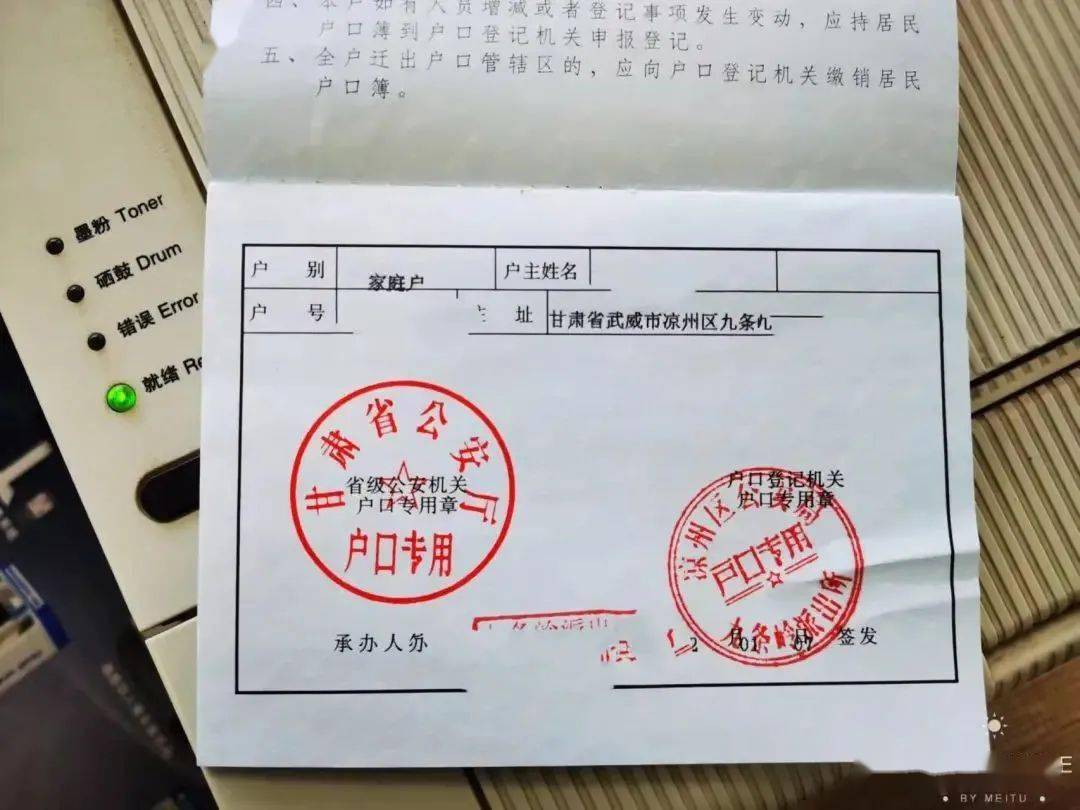 四、本户如有人员增减或者登记事项发生变动，应持居民
户口簿到户口登记机关申报登记。
五、全户迁出户口管辖区的，应向户口登记机关缴销居民
户口簿。
墨粉 Toner
硒鼓 Drum
错误 Error
就绪 Re
户 别 家庭户 户主姓名
户 号 址 甘肃省武威市凉州区九条
甘肃省公安厅
省级公安机关
户口专用章
户口专用
户口登记机关
户口专用章
凉州区公安局
户口专用
九条岭派出所
条岭派出
承办人
2 月01 07 签发
E
BY MEITU